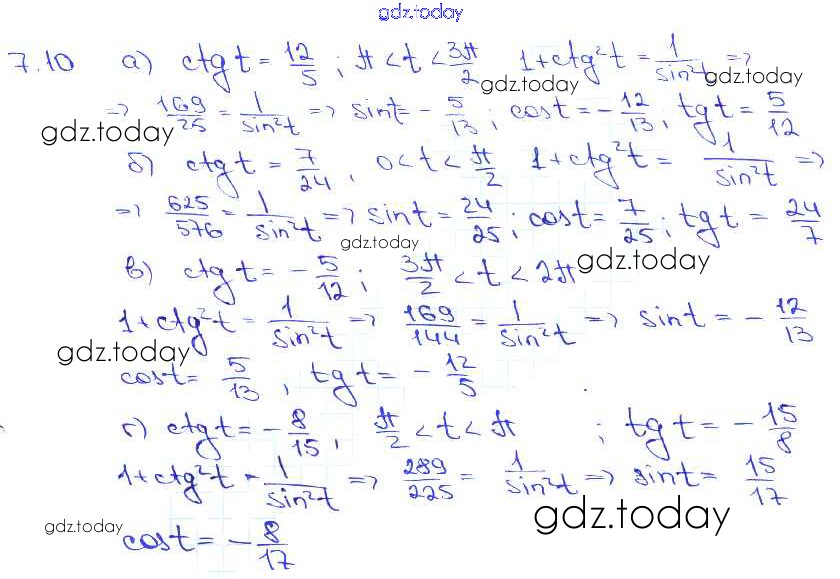 gdz.today
7.10 а) ctg t = 12/5 ; π < t < 3π/2 1 + ctg²t = 1/sin²t =>
=> 169/25 = 1/sin²t => sin t = - 5/13 ; cos t = - 12/13 ; tg t = 5/12
gdz.today gdz.today gdz.today
б) ctg t = 7/24 , 0 < t < π/2 1 + ctg²t = 1/sin²t =>
=> 625/576 = 1/sin²t => sin t = 24/25 ; cos t = 7/25 ; tg t = 24/7
gdz.today
в) ctg t = - 5/12 ; 3π/2 < t < 2π gdz.today
1 + ctg²t = 1/sin²t => 169/144 = 1/sin²t => sin t = - 12/13
gdz.today
cos t = 5/13 , tg t = - 12/5
г) ctg t = - 8/15 , π/2 < t < π ; tg t = - 15/8
1 + ctg²t - 1/sin²t => 289/225 = 1/sin²t => sin t = 15/17
gdz.today gdz.today
cos t = - 8/17